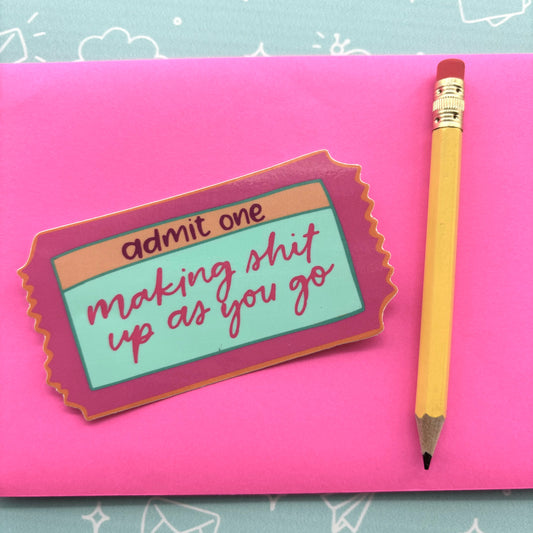 admit one
making shit
up as you go